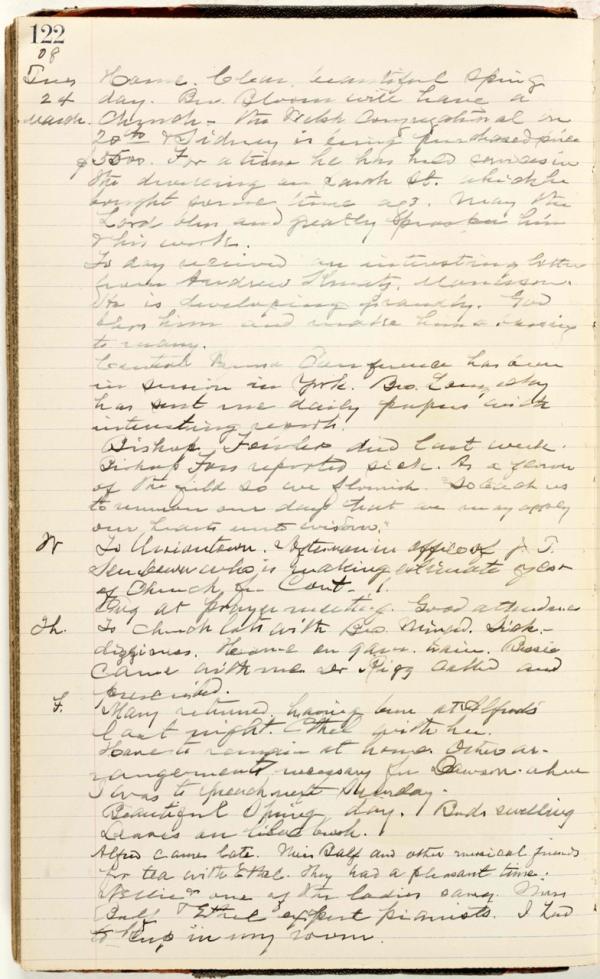 122
08
Tues Home. Clear, beautiful Spring
24 day. Bro. Bloom will have a
March. Church - the Welsh Congregational on
20th & Sidney is being purchased price
$5500. For a time he has held services in
the dwelling on Sarah St. which he
bought some time ago. May the
Lord bless and greatly prosper him
& his work.
To day received an interesting letter
from Andrew
He is developing grandly. God
bless him and make him a blessing
to many.
Central Penna Conference has been
in session in York. Bro.
has sent me daily papers with
interesting reports.
Bishop Fowler died last week.
Bishop Foss reported sick. As a flower
of the field so we flourish. "So teach us
to number our days that we may apply
our hearts unto wisdom."
W To Uniontown. Afternoon in office of J. T.
who is making estimate of cost
of Church for Cont.
at prayer meeting. Good attendance
Th. To church lots with Bro. Sick -
dizziness. Home on 4 p.m. train. Bessie
came with me. Dr Rigg called and
prescribed.
F. Mary returned, having been at Alfred's
last night. Ethel with her.
Have to remain at home. Other ar-
rangements necessary for Dawson where
I was to preach next Sunday.
Beautiful Spring day. Buds swelling
Leaves on lilac bush.
Alfred came late. Miss Balf and other musical friends
for tea with Ethel. They had a pleasant time.
Nellie & one of the ladies sang. Miss
Balf & Ethel expert pianists. I had
to keep in my room.